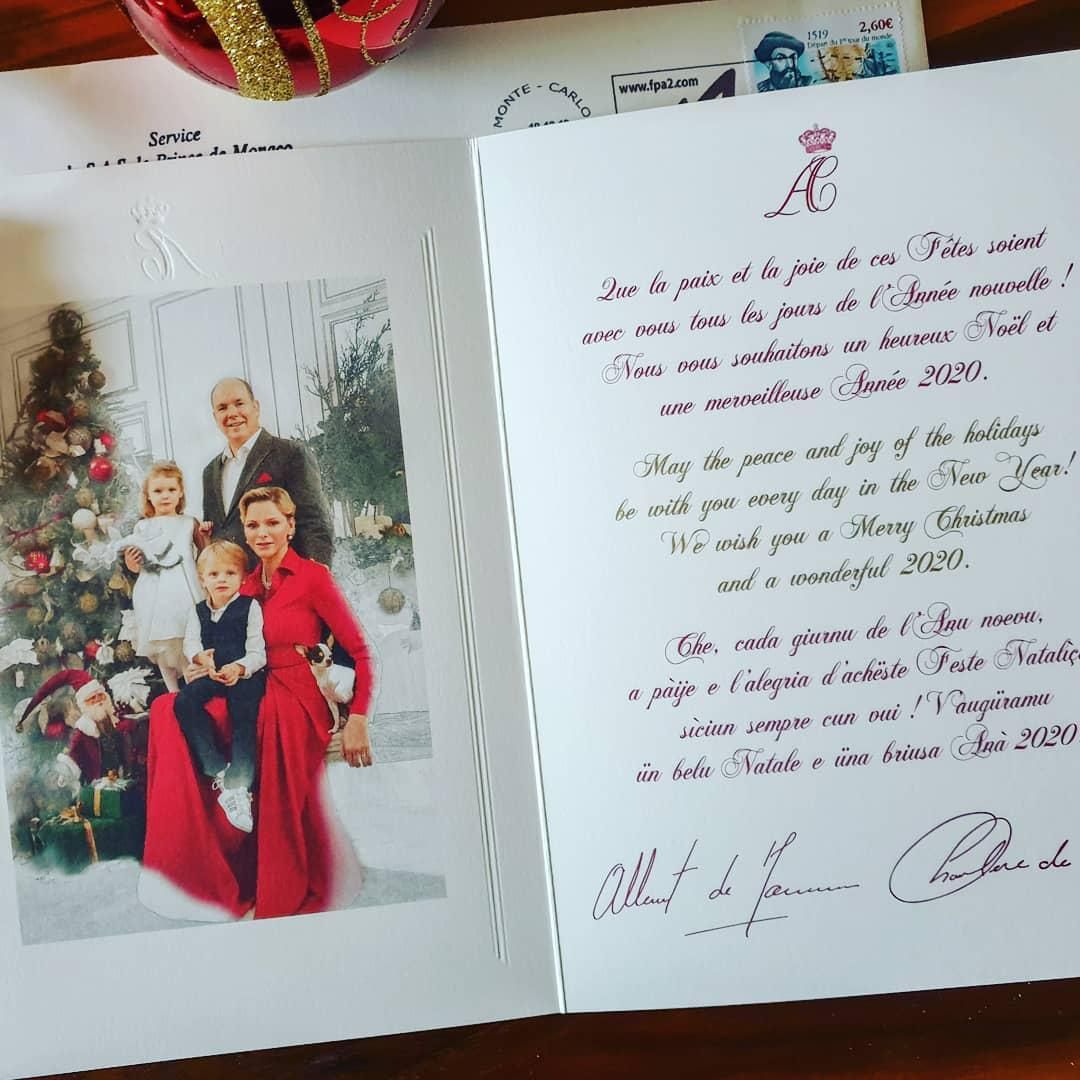 1519 2,60€
Départ du 1er tour du monde
www.fpa2.com
MONTE - CARLO
Service
de S.A.S. le Prince de Monaco
AC
Que la paix et la joie de ces Fêtes soient
avec vous tous les jours de l'Année nouvelle !
Nous vous souhaitons un heureux Noël et
une merveilleuse Année 2020.
May the peace and joy of the holidays
be with you every day in the New Year!
We wish you a Merry Christmas
and a wonderful 2020.
Che, cada giurnu de l'Anu noevu,
a pàije e l'alegria d'achëste Feste Nataliç
sìciun sempre cun vui ! V'augüramu
ün belu Natale e üna briusa Anà 2020
Albert de Monaco
Charlene de